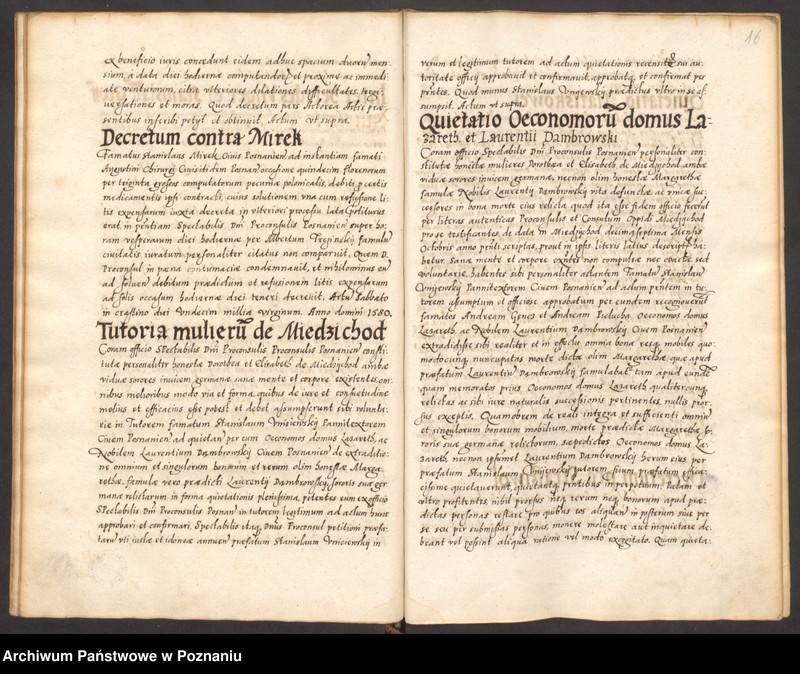 ex beneficio iuris concedunt eidem adhuc spacium duorũ men-
sium, a data diei hodiernæ computandoɍ et proxime ac immedi-
ate venturorum, citra vlteriores dilationes difficultates, tergi-
uersationes et moras. Quod decretum pars Actorea Actis præ-
sentibus inscribi petyt et obtinuit. Actum vt supra.
Decretum contra Mirek
Famatus Stanislaus Mirek Ciuis Posnanień ad instantiam famati
Augustini Chirurgi
per triginta grossos computatorum pecuniæ polonicalis, debiti, p certis
medicamentis ipsi contracti, cuius solutionem vna cum refusione li-
tis expensarum iuxta decreta in vlteriori processu lata
erat in pñtiam Spectabilis Dñi Proconsulis Posnanień super ho-
ram vesperarum diei hodiernæ per Albertum famulũ
ciuitatis iuratum personaliter citatus non comparuit, Quem D.
Proconsul in pæna contumaciæ condemnauit, et nihilominus eũ
ad soluen debitum prædictum et refusionem litis expensarum
ad solis occasum hodiernæ diei teneri decreuit. Actũ Sabbato
in crastino diei Vndecim millia virginum. Anno domini 1580.
Tutoria mulierũ de Miedzichod
Coram officio Spectabilis Dñi Proconsulis Proconsulis Posnanień consti-
tutæ personaliter honestæ Dorothea et Elisabeth de Miedzichod ambæ
viduæ sorores inuicem germanæ sanæ mente et corpore existentes, om-
nibus melioribus modo via et forma, quibus de iure et consuetudine
melius et efficacius esse potest et debet, assumpserunt sibi volunta-
rie in Tutorem famatum Stanislaum Vniciewskij Pannitextorem
Ciuem Posnanień ad quietań per eum Oeconomos domus Lazareth, ac
Nobilem Laurentium Dambrowskij Ciuem Posnanień de extraditio-
ne omnium et singulorum bonorum et rerum olim honestæ Marga-
rethæ, famulæ vero prædicti Laurentij Dambrowskij, sororis suæ ger-
manæ relictarum in forma quietationis plenissima, petentes eum ex officio
Spectabilis Dñi Proconsulis Posnań in tutorem legitimum ad actum hunc
approbari et confirmari. Spectabilis itaq, Dñus Proconsul petitioni præfa-
tarũ vti iustæ et idoneæ annueń præfatum Stanislaum Vniciewskij in
16
verum et legitimum tutorem ad actum quietationis recensitæ sui au-
toritate officij approbauit et confirmauit, approbatq, et confirmat per
pñtes. Quod munus Stanislaus Vnijewskij prædictus vltro in se as-
sumpsit. Actum vt supra.
Quietatio Oeconomorũ domus La-
zareth, et Laurentii Dambrowski
Coram officio Spectabilis Dñi Proconsulis Posnanień personaliter con-
stitutæ honestæ mulieres Dorothea et Elisabeth, de Miedzichod, ambæ
viduæ sorores inuicem germanæ, necnon olim honestæ Margarethæ
famulæ Nobilis Laurentij Dambrowskij vita defunctæ, ac vnicæ suc-
cessores in bona morte eius relicta, quod ita esse fidem officio fecerũt
per literas autenticas Proconsulis et Consulum Oppidi Miedzichod
pro se testificantes, de data in Miedzichod decimaseptima Mensis
Octobris anno pñti scriptas, prout in ipsis literis latius descriptũ ha-
betur. Sanæ mente et corpore exñtes non compulsæ nec coactæ sed
voluntariæ, habentes sibi personaliter astantem Famatũ Stanislaũ
Vnijewskij Pannitextorem Ciuem Posnanień ad actum pñtem in tu-
torem assumptum et officiose approbatum per eundem recognouerũt
famatos Andream et Andream Oeconomos domus
Lazareth, ac Nobilem Laurentium Dambrowskij Ciuem Posnanień
extradidisse sibi realiter et in effectu omnia bona resq, mobiles quo-
modocunq, nuncupatas morte dictæ olim Margarethæ, quæ apud
præfatum Laurentiũ Dambrowskij famulabat, tam apud eundẽ
quam memoratos prius Oeconomos domus Lazareth qualitercunq,
relictas ac sibi iure naturalis successionis pertinentes, nullis pror-
sus exceptis. Quamobrem de reali integra et sufficienti omniũ
et singulorum bonorum mobilium, morte prædictæ Margarethæ so-
roris suæ germanæ relictorum, sæpedictos Oeconomos domus La-
zareth, necnon ipsumet Laurentium Dambrowskij herum eius per
præfatum Stanislaum Vnijewskij tutorem suum, præfatum effica-
cissime quietauerunt, quietantq, pñtibus in perpetuum. Palam et
vltro profitentes, nihil prorsus neq, rerum neq, bonorum apud præ-
dictas personas restare pro quibus eos aliquań in posterum siue per
se seu per submissas personas, monere molestare aut inquietare de-
brant vel possint aliqua ratione vel modo excogitato. Quam quieta-
Archiwum Państwowe w Poznaniu